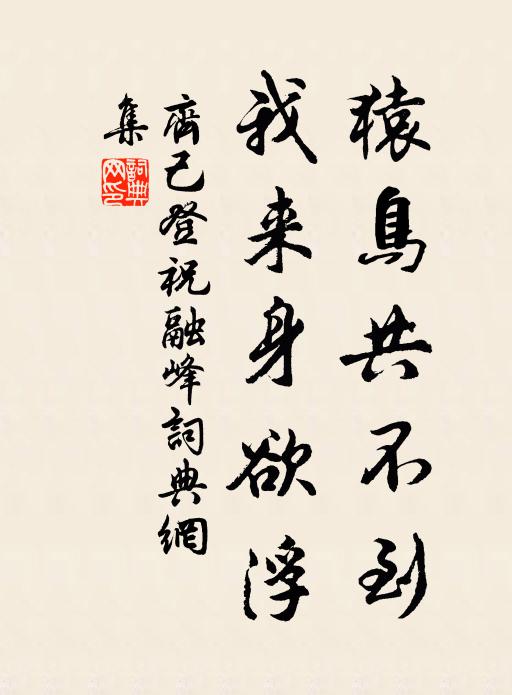 猿鳥共不到
我来身欲浮
齊己登祝融峰詞典網
集
詞典
网印